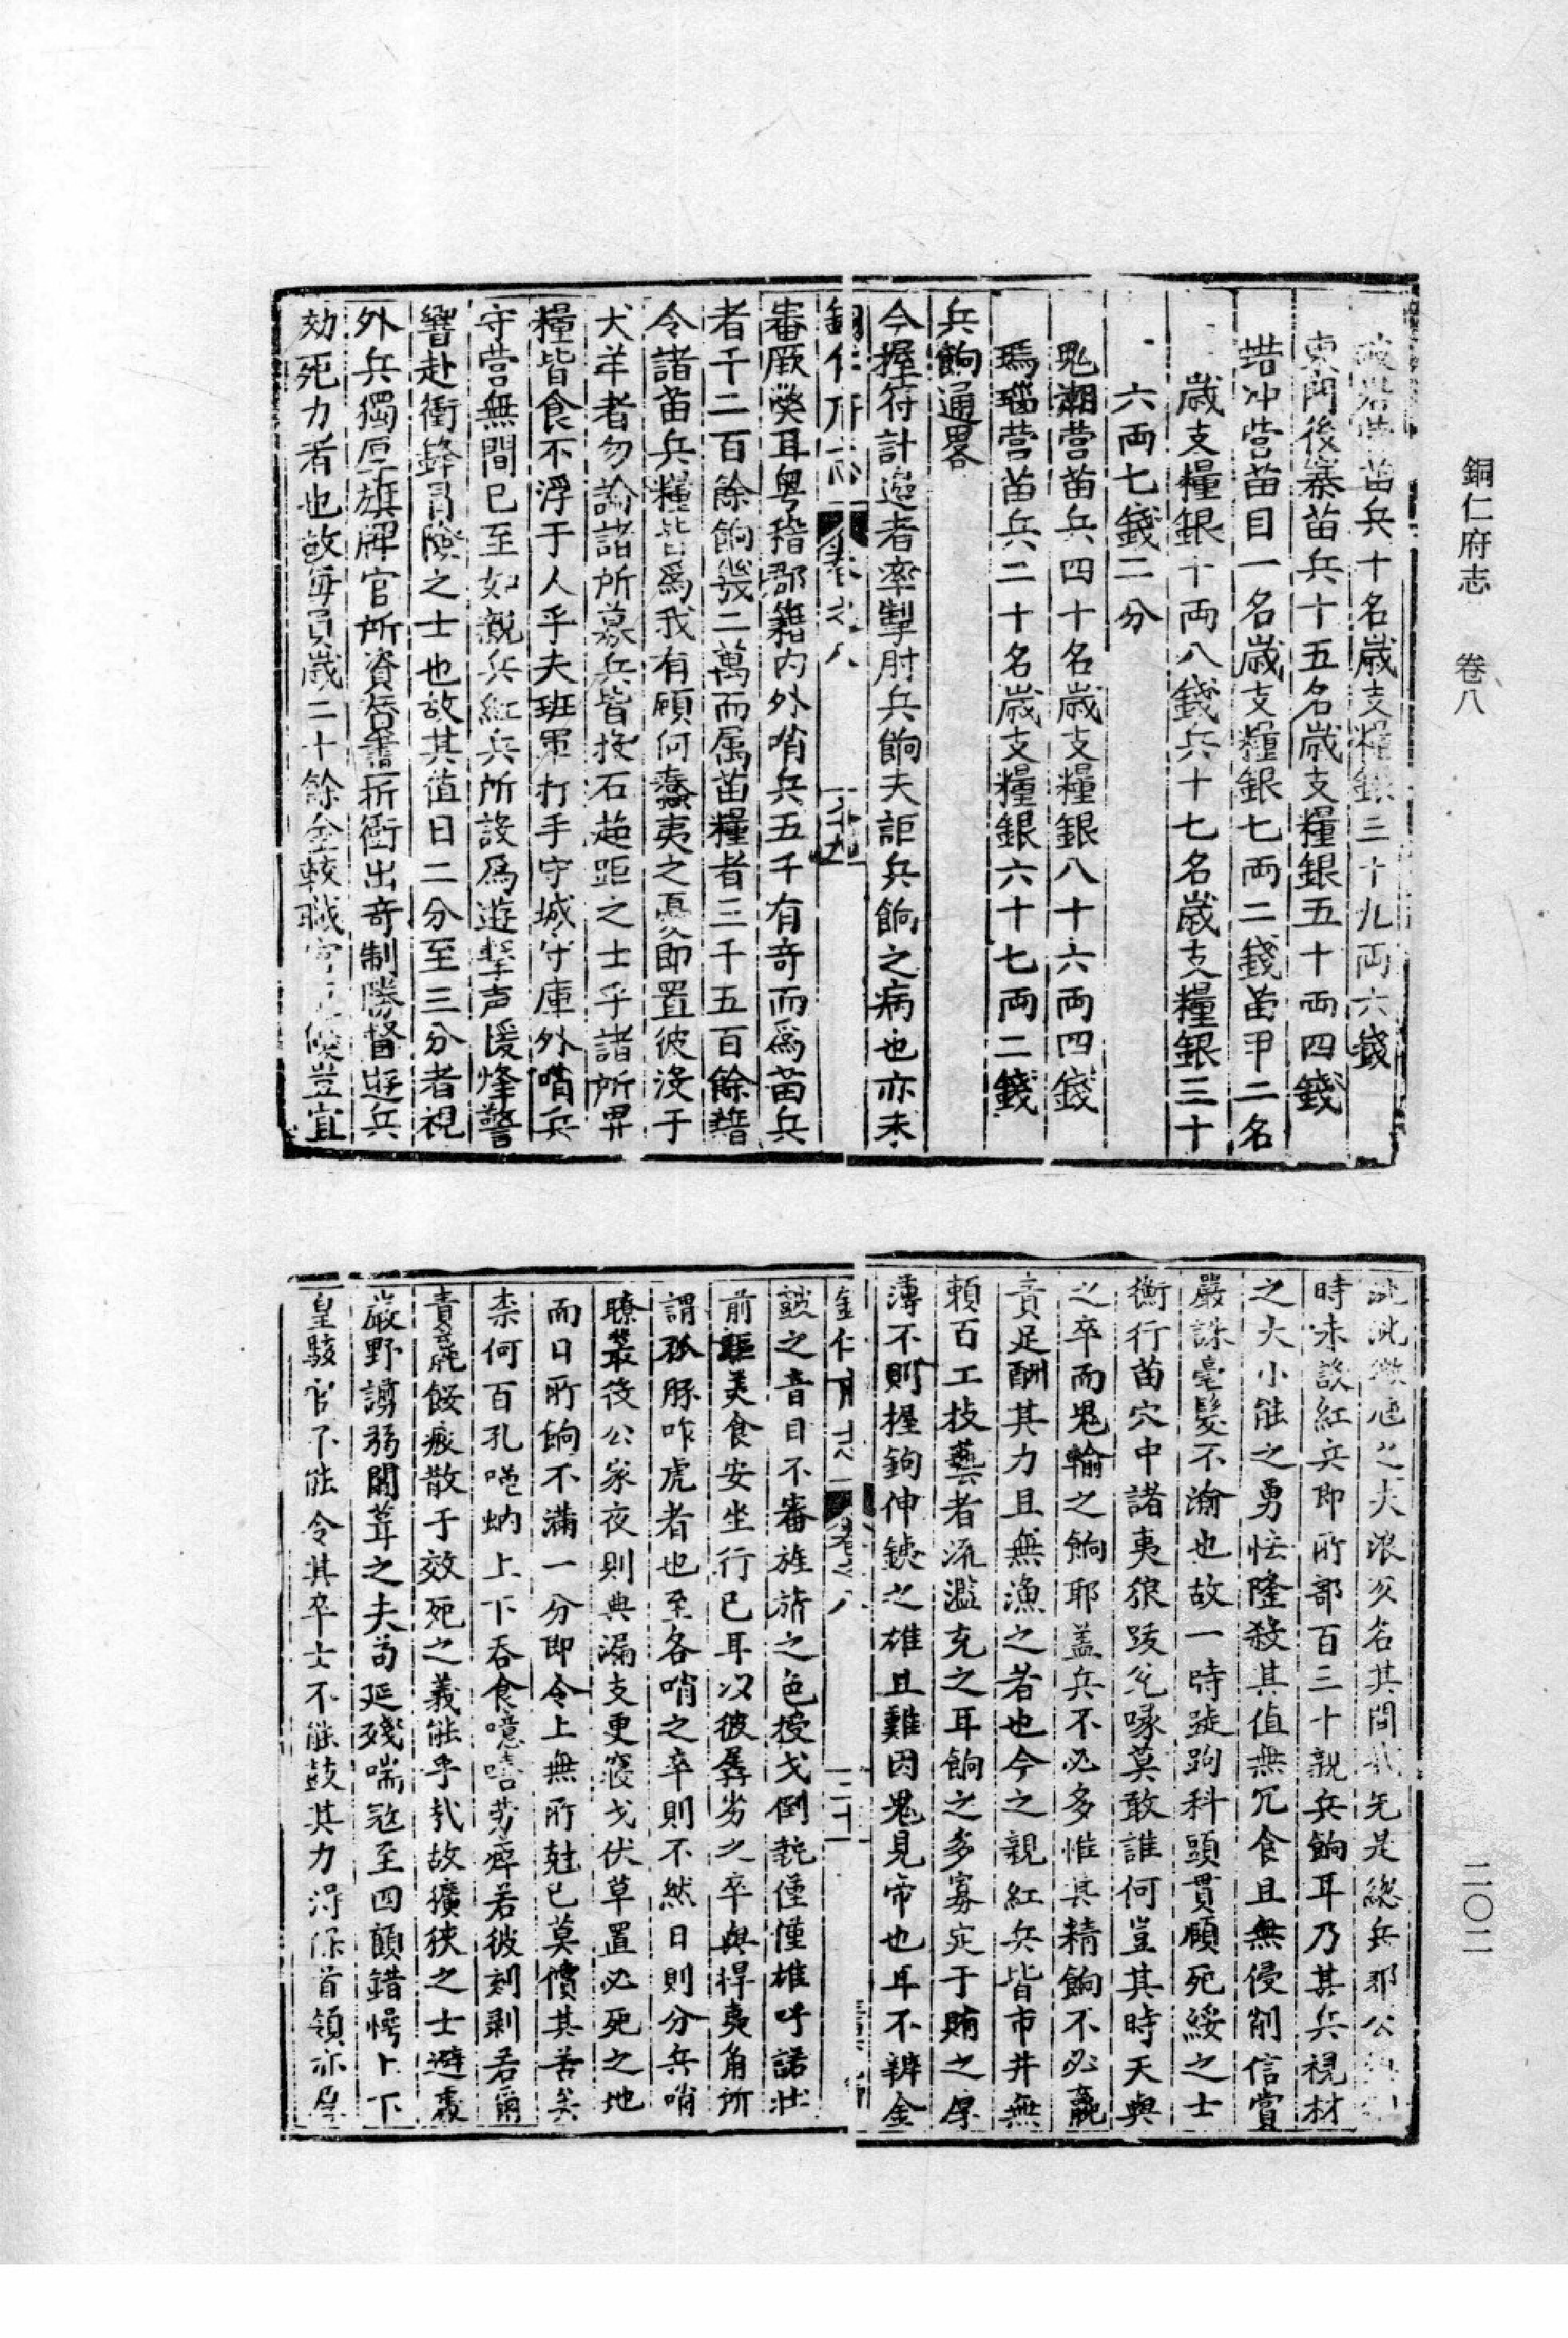 銅仁府志 卷八
二〇二
苗兵十名歲支糧銀三十九両六錢
東門後寨苗兵十五名歲支糧銀五十両四錢
塔冲営苗目一名歲支糧銀七両二錢苗甲二名
歲支糧銀十両八錢兵十七名歲支糧銀三十
六両七錢二分
営苗兵四十名歲支糧銀八十六両四錢
瑪瑙営苗兵二十名歲支糧銀六十七両二錢
兵餉通畧
今握符計邉者率掣肘兵餉夫詎兵餉之病也亦未
銅仁府志 卷之八
審厥弊耳粤稽郡籍内外哨兵五千有奇而爲苗兵
者千二百餘餉幾二萬而属苗糧者三千五百餘藉
令諸苗兵糧皆爲我有顧何蠢夷之憂即置彼浸于
犬羊者勿論諸所募兵皆投石超距之士乎諸所畀
糧皆食不浮于人乎夫班軍打手守城守庫外哨兵
守营無間已至如親兵紅兵所設爲遊擊声援烽警
響赴衝鋒冒險之士也故其值日二分至三分者視
外兵獨厚旗牌官所資啓畵折衝出奇制勝督逰兵
効死力者也故每員歲二十餘金較職官豈宜
之夫浪次名其間哉先是總兵邢公
時未設紅兵即所部百三十親兵餉耳乃其兵視材
之大小能之勇怯隆殺其值無冗食且無侵削信賞
嚴誅毫髮不渝也故一時跿跔科頭貫頤死綏之士
衡行苗穴中諸夷狼跋兊喙莫敢誰何豈其時天與
之卒而鬼輸之餉耶盖兵不必多惟其精餉不必羸
責足酬其力且無漁之若也今之親紅兵皆市井無
頼百工技藝者流濫克之耳餉之多寡定于賄之厚
薄不則握鉤伸鉄之雄且難因鬼見帝也耳不辨金
卷之八 二十
鼓之音目不審旌旂之色授戈倒執僅僅雄呼諾壯
前驅美食安坐行已耳以彼孱劣之卒與捍夷角所
謂孤豚咋虎者也至各哨之卒則不然日則分兵哨
瞭叢後公家夜則典漏支更寢戈伏草置必死之地
而日所餉不滿一分即令上無所尅已莫償其苦矣
柰何百孔上下吞食噫嘻劳瘁若彼剥若爾
責羸餒疲散于效死之義能乎哉故獷狡之士避處
嚴野謭弱闒茸之夫苟延殘喘冦至四顧錯愕上下
皇駭官不能令其卒士不能鼓其力得保首領亦